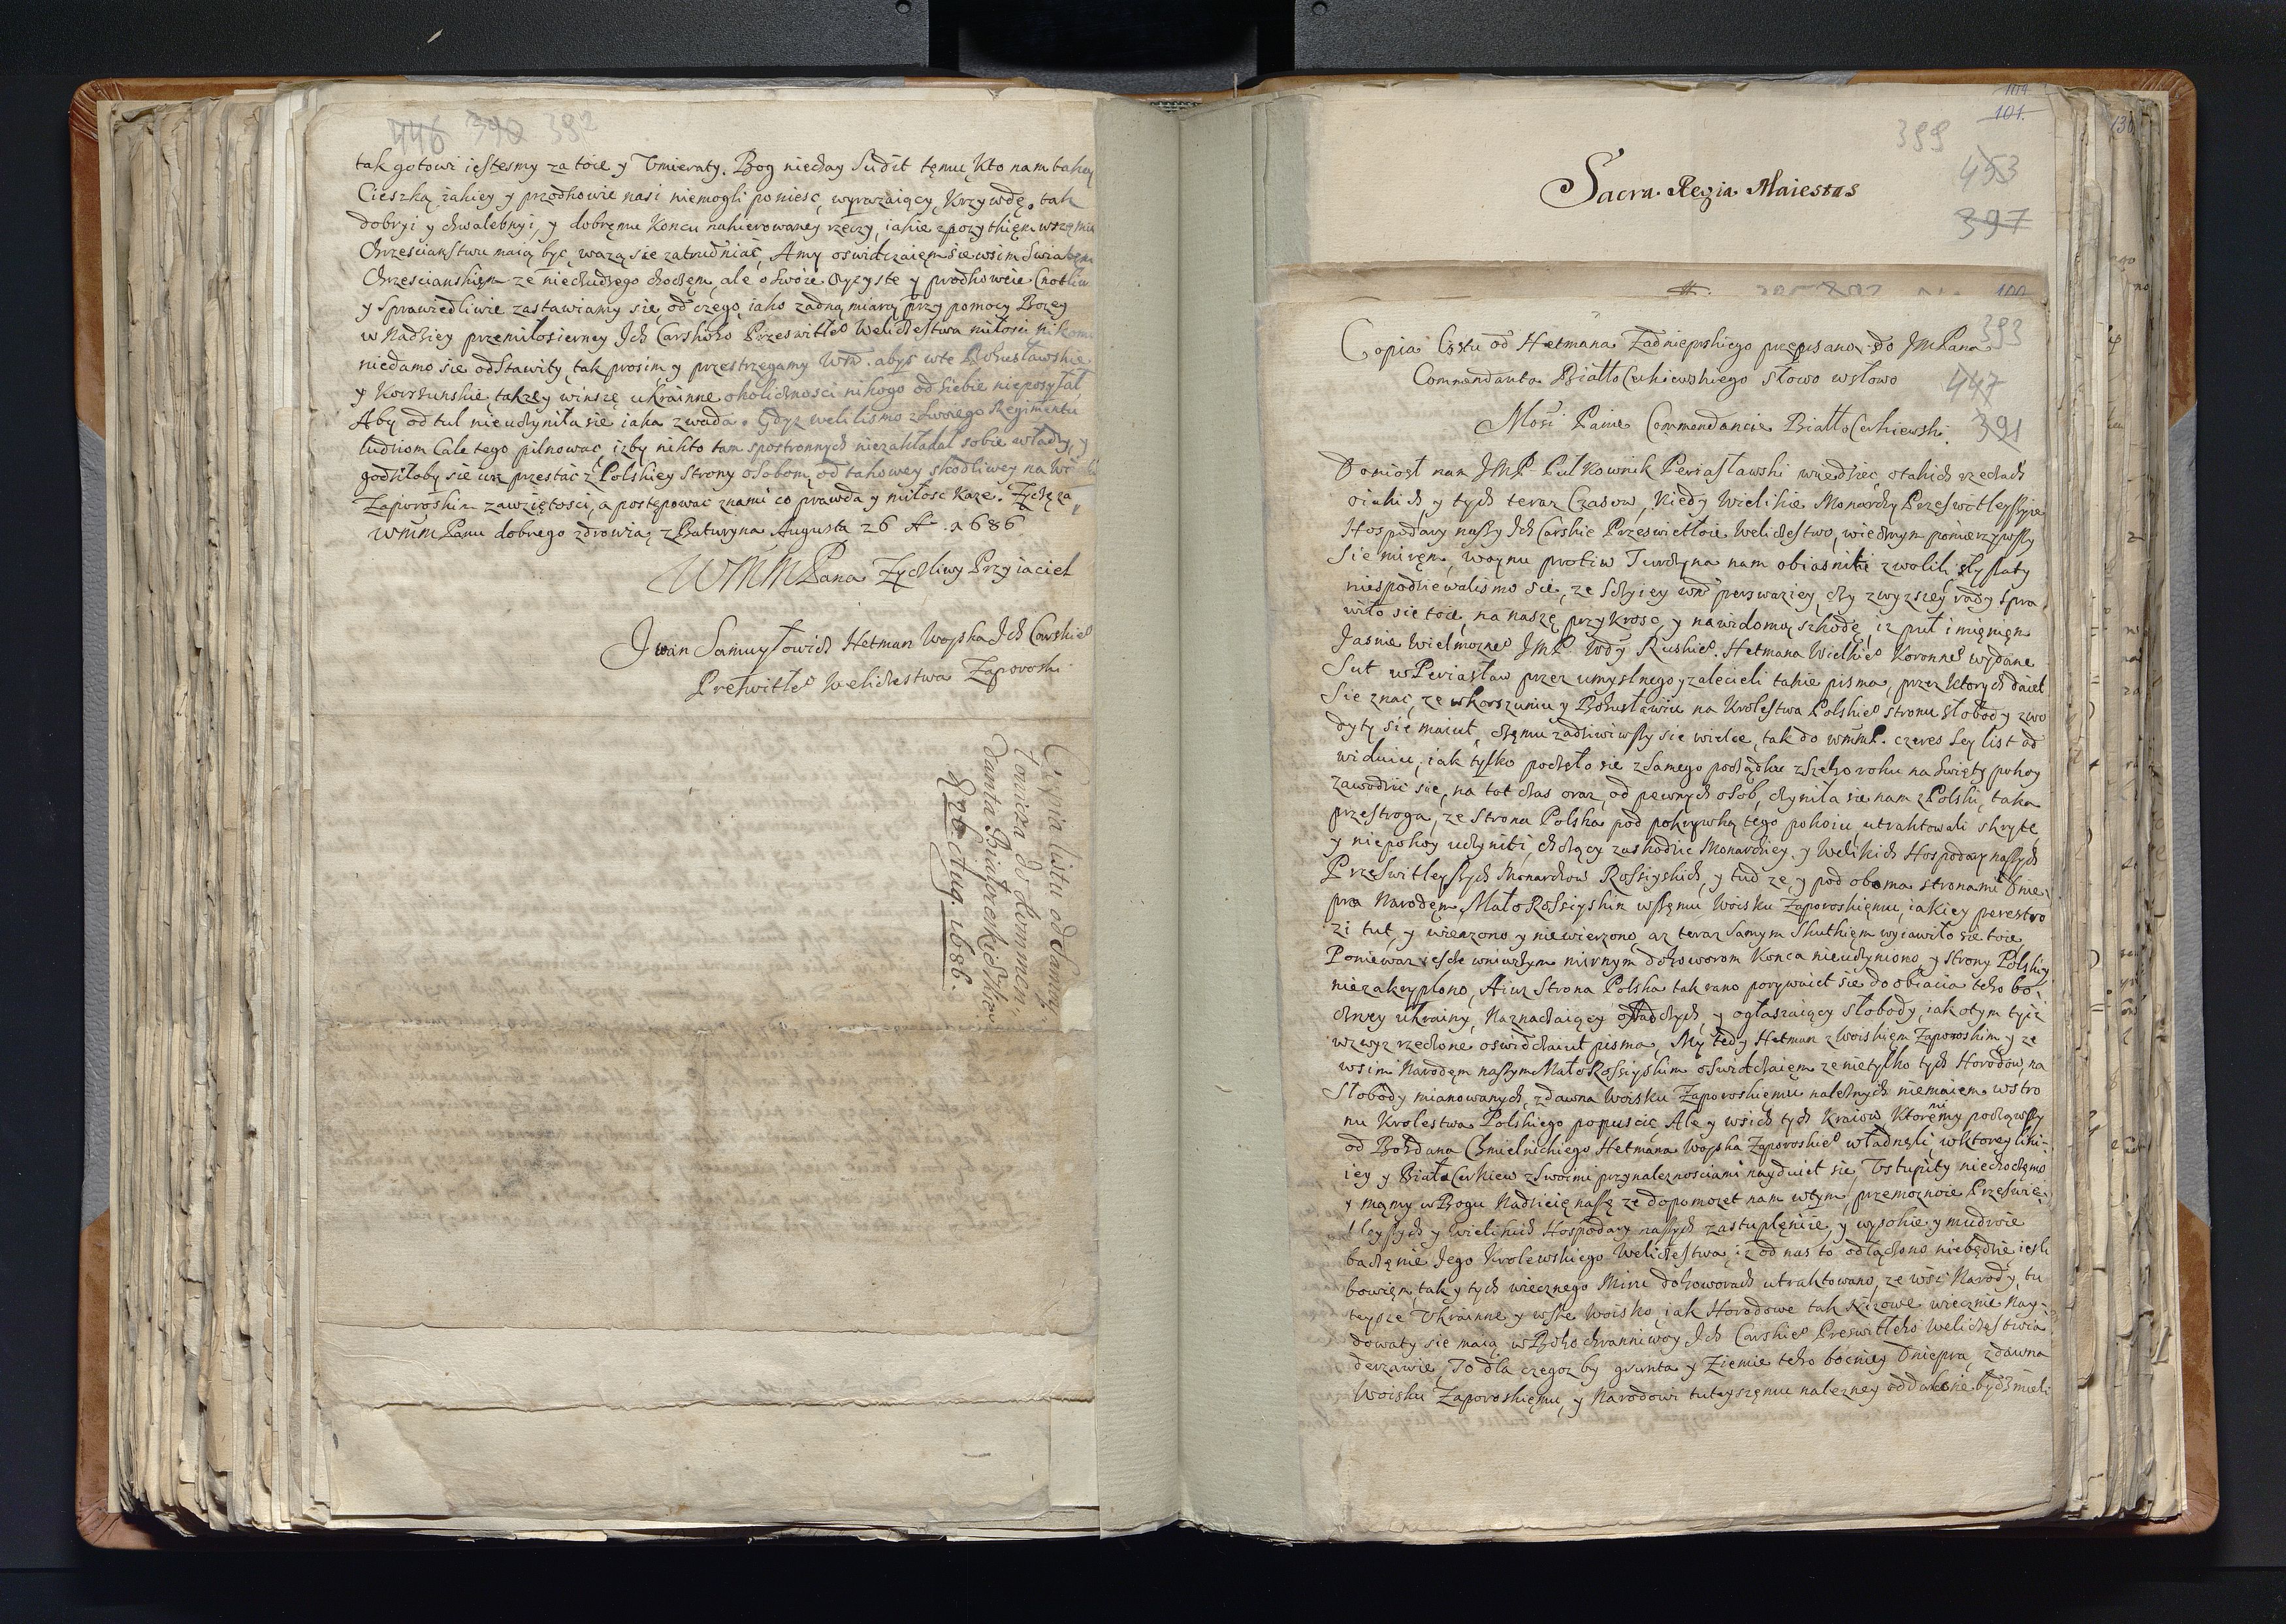 446 390 392
tak gotowi iestesmy za toie y Umieraty. Bog niechay Sudit temu, Kto nam takąy
Cieszką, iakiey y przodkowie nasi niemogli poniesć, wyrwzaiący, Krzywdę. tak
dobryi y chwalebnyi, y dobremu Koncu nakierowaney rzeczy, iakie z pozytkiem
Chrzescianstwu maią byc, wazą sie zatrudniać, Amy oswidczaiem sie wsim Swiatem
Chrzescianskiem ze niechudzego chocżem, ale o swoie Oyczyste y prodkowcie
y Sprawiedliwie zastawiamy sie, od czego, iako zadną miarą, przy pomocy Bozey
w Nadziey przemiłosierney Ich Carskoho Przeswitłeo Weliczestwa miłosci nikomu
niedamo sie odstawity, tak prosim y przestrzegamy Wm. abys w te Bohusławskie
y Korszunskie, takzey winszę ukrainne okolicznosci nikogo od siebie nieposyłał
Aby od tul nieuczyniła sie iaka zwada. Gdyz welilismo z Swoiego Regimentu
ludziom Cale tego pilnowac, izby nikto tam spostronnych niezakładał sobie władzy, y
godziłoby sie iuz przestać z Polskiey Strony osobom, od takowey skodliwey na
Zaporoskim zawziętosci, a postępowac znami co prawda y miłosc kaze. Zyczę za
WMM Panu dobrego zdrowia, z Baturyna Augusta 26 A. 1686
WMM Pana Zyczliwy Przyiaciel
Iwan Samuyłowicz Hetman Woyska Ich Carskieo
Preswitłeo Weliczestwa Zaporoski
Coppia listu od Samoy-
łowicza do Commen-
danta Białocerkiewskie
26 Aug. 1686.
104
101.
399
453
397
Sacra Regia Maiestas
100
393
Copia Listu od Hetmana Zadnieprskiego przepisano do JM Pana
Commendanta BiałłoCerkiewskiego słowo wsłowo
447
391
Mosi Panie Commendancie BiałłoCerkiewski
Doniosł nam JMP Pułkownik Periasławski wiedziec o takich rzeczach
oiakich, y tych teraz Czasow, Kiedy Wielikie Monarchy Przeswitleyszyie
Hospodary naszy Ich Carskie Przeswietłoie Weliczestwo, wiecznym pomierzywszy
Sie mirem, woynu protiw Turczyna nam obiasniti zwolili słyszaty
niespodziewalismo sie, ze Sczyiey wm perswaziey, czy zwyzszey rady spra
wiło się toie, na naszę przykrosc, y nawidomą szkodę, iz pul imięniem
Jasnie Wielmozneo JMP Wdy Ruskieo. Hetmana Wielkieo Koronneo wydane
Sut w Periasław przez umyslnego zaleceli takie pisma, przez ktorych daiet
Sie znać, ze w Korszuniu y Bohusławiu na Krolestwa Polskieo stronu słobody zwo
dyty się maiut, czemu zadziwiwszy się wielce, tak do wmmP. czeres Sey list od
widaiu, iak tylko poczęło się z Samego początku zSzcho roku na Swięty pokoy
zawodzic sie, na tot czas oraz, od pewnych osob, czyniła sie nam z Polski, taka
przestroga, ze Strona Polska pod pokrywką tego pokoiu, utraktowali skryte
y niepokoy uczyniti, chcący zaskodzic Monarchiey y Welikich Hospodary naszych
Przeswitleyszych Monarchow Rossiyskich, y tud ze, y pod oboma stronami Dnie
pra Narodem Mało Rossiyskim wszemu Woisku Zaporoskiemu, iakiey perestro
zi tut, y wierzono y niewierzono, az teraz Samym Skutkiem wyiawiło sie toie,
Poniewaz iescze wniuczym mirnym dohoworom Konca nieuczyniono, y strony Polskiey
niezakryplono, A iuz Strona Polska tak rano porywaiet sie do obiacia teho bo
czney ukrainy, Naznaczaiący osadczych, y ogłaszaiący słobody, iak otym tyie
wzwyz rzeczone oswidczaiut pisma, My tedy Hetman z Woiskiem Zaporoskim y ze
wsim Narodem naszym MałoRossiyskim oswidczaiem ze nietylko tych Horodow, na
Słobody mianowanych, zdawna Woisku Zaporoskiemu naleznych niemaiem w stro
nu Krolestwa Polskiego popuscić Ale y wsich tych Kraiow, Ktoremi my począwszy
od Bohdana Chmielnickiego Hetmana Woyska Zaporoskieo władneli, w ktorey lini-
iey y BiałaCerkiew z Swoimi przynaleznosciami nayduiet sie, Ustupity niechoczemo
y mamy w Bogu Nadzieię naszę ze dopomozet nam w tym, przemoznoie Przeswie
tleyszych y Wielikich Hospodary naszych zastuplęnie, y wysokie y mudroie
baczęnie Jego Krolewskiego Weliczestwa, iz od nas to odłączono niebędzie iesli
bowiem, tak y tych wiecznego Miru dohoworach utraktowano, ze wsi Narody, tu
teysze Ukrainne y wsze Woisko, iak Horodowe tak Nizowe wiecznie Nay-
dowaty sie maią w Bohochranniwoy Ich Carskieo Preswitłoho Weliczestwa
derzawie, To dla czegoz by grunta y Ziemie teho boczney Dniepra, zdawna
Woisku Zaporoskiemu, y Narodowi tuteyszemu nalezney oddalenie bydz mieli